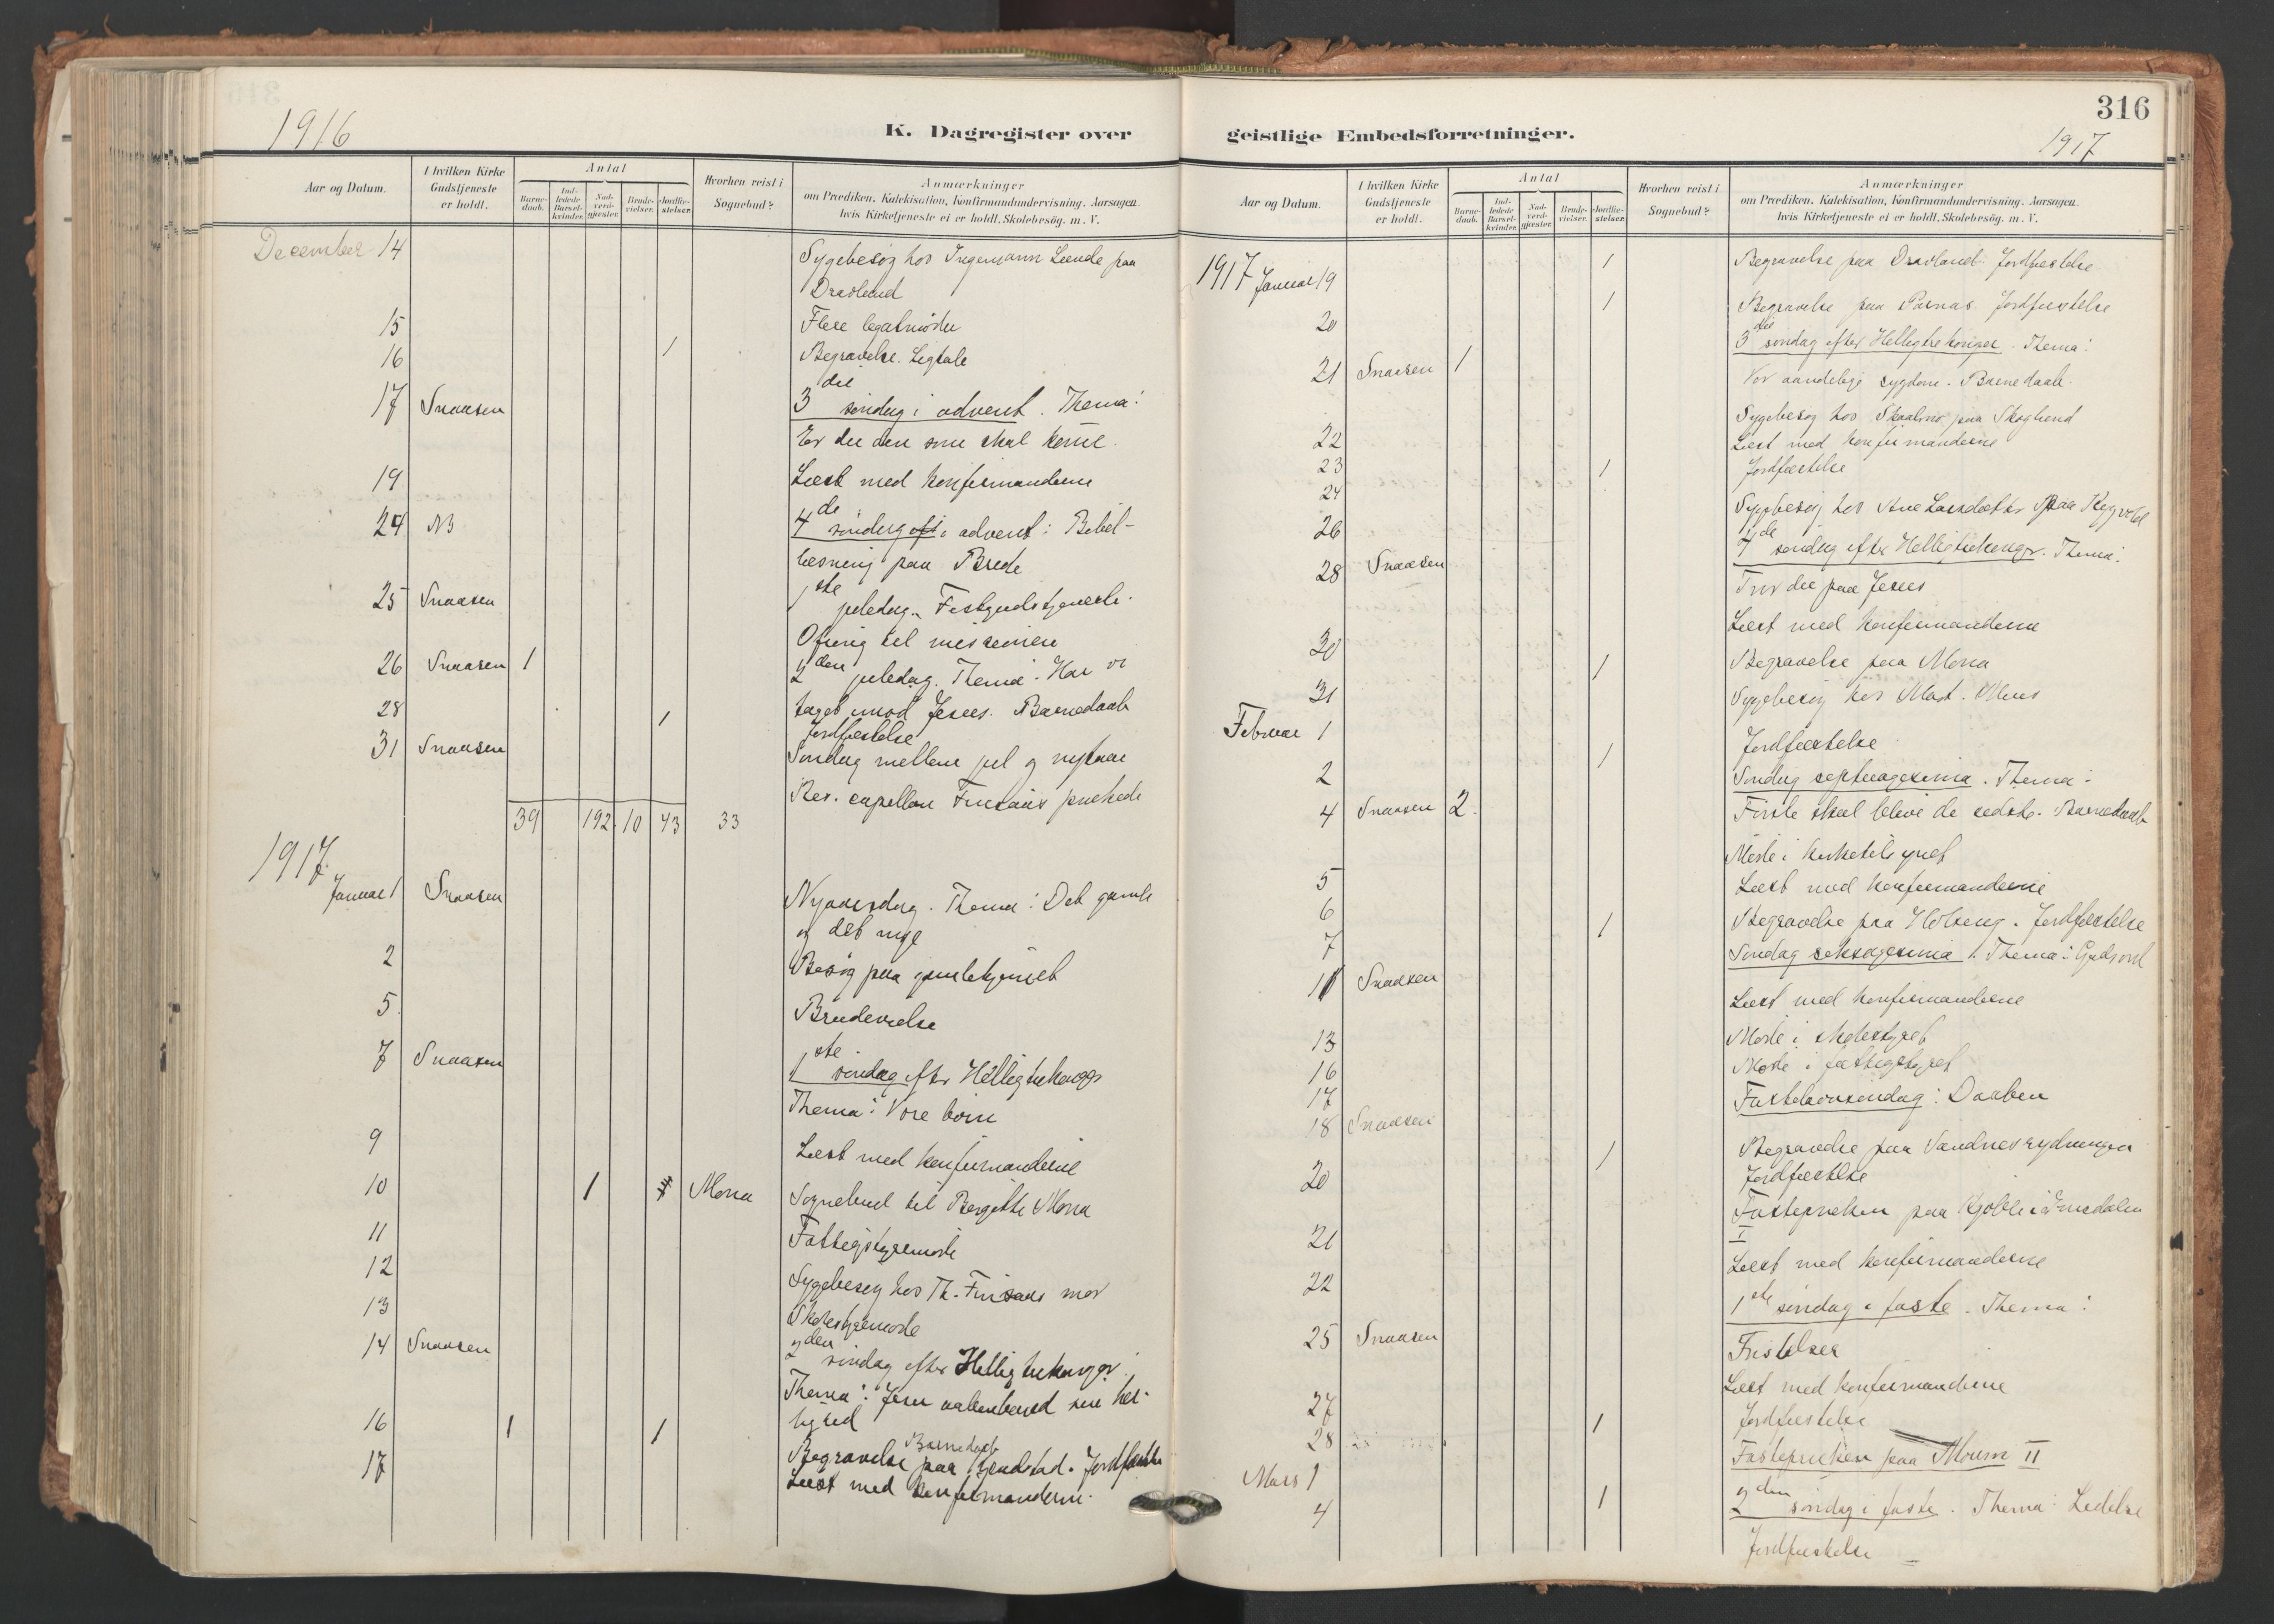 1916
K. Dagregister over
Aar og Datum.
I hvilken Kirke Gudstjeneste er holdt.
Antal
Barne-daab.
Ind-ledede Barsel-kvinder.
Nad-verd-gjæster.
Brude-vielser.
Jordfæ-stelser.
Hvorhen reist i Sognebud?
Anmærkninger
om Prædiken. Katekisation, Konfirmandundervisning. Aarsagen.
hvis Kirketjeneste ei er holdt. Skolebesög. m. V.
December 14 Sygebesøg hos Ingemann Lunde paa
Dravland
15 Flere legatmöder
16 1 Begravelse. Ligtale
17 Snaasen 3die söndag i advent. Thema:
Er du den som skal komme.
19 Læst med konfirmanderne
24 NB 4de söndag i advent: Bibel-
læsning paa Brede
25 Snaasen 1ste juledag. Festgudstjeneste.
Ofring til missionen
26 Snaasen 1 2den juledag. Thema: Har vi
taget mod Jesus. Barnedaab
28 1 Jordfæstelse
31 Snaasen Söndag mellem jul og nytaar
Res. capellan prækede
39 192 10 43 33
1917
Januar 1 Snaasen Nyaarsdag. Thema: Det gamle
og det nye
2 Besøg paa gamlehjemmet
5 Brudevielse
7 Snaasen 1ste söndag efter Helligtrekonger
Thema: Vore børn
9 Læst med konfirmanderne
10 1 Mona Sognebud til Bergitte Mona
11 Fattigstyremöde
12 Sygebesøg hos Th. Finsaas mor
13 Skolestyremöde
14 Snaasen 2den söndag efter Helligtrekonger.
Thema: Jesu aabenbared sin her-
lighed
16 1 1 Barnedaab
Begravelse paa Jordfæstelse
17 Læst med konfirmanderne.
316
1917
geistlige Embedsforretninger.
Aar og Datum.
I hvilken Kirke Gudstjeneste er holdt.
Antal
Barne-daab.
Ind-ledede Barsel-kvinder.
Nad-verd-gjæster.
Brude-vielser.
Jordfæ-stelser.
Hvorhen reist i Sognebud?
Anmærkninger
om Prædiken. Katekisation, Konfirmandundervisning. Aarsagen.
hvis Kirketjeneste ei er holdt. Skolebesög. m. V.
1917 Januar 19 1 Begravelse paa Dravland. Jordfæstelse
20 1 Begravelse paa Parnas. Jordfæstelse
3die söndag efter Helligtrekonger. Thema:
21 Snaasen 1 Vor aandelige sygdom. Barnedaab.
Sygebesøg hos paa Skoglund
22 Læst med konfirmanderne
23 1 Jordfæstelse
24 Sygebesøg hos Ane Larsdatter paa
26 4de söndag efter Helligtrekonger. Thema:
28 Snaasen Tror du paa Jesus
Læst med konfirmanderne
30 1 Begravelse paa Mona
31 Sygebesøg hos
Februar 1 Jordfæstelse
2 1 Söndag septuagesima. Thema:
4 Snaasen 2 Første skal blive de sidste. Barnedaab
Möde i kirketilsynet
5 Læst med konfirmanderne
6 1 Begravelse paa Jordfæstelse
7 Söndag seksagesima. Thema: Guds ord
11 Snaasen
Læst med konfirmanderne
13 Möde i skolestyret
16 Möde i fattigstyret
17 Fastelavnsöndag: Daaben
18 Snaasen
1 Begravelse paa Sandnesrydningen
20 Jordfæstelse
Fastepræken paa
21 I
Læst med konfirmanderne
22 1ste söndag i faste. Thema:
25 Snaasen Fristelser
Læst med konfirmanderne
27 1 Jordfæstelse
28 Fastepræken paa Moum II
Mars 1 2den söndag i faste. Thema: Lidelse
4 1 Jordfæstelse